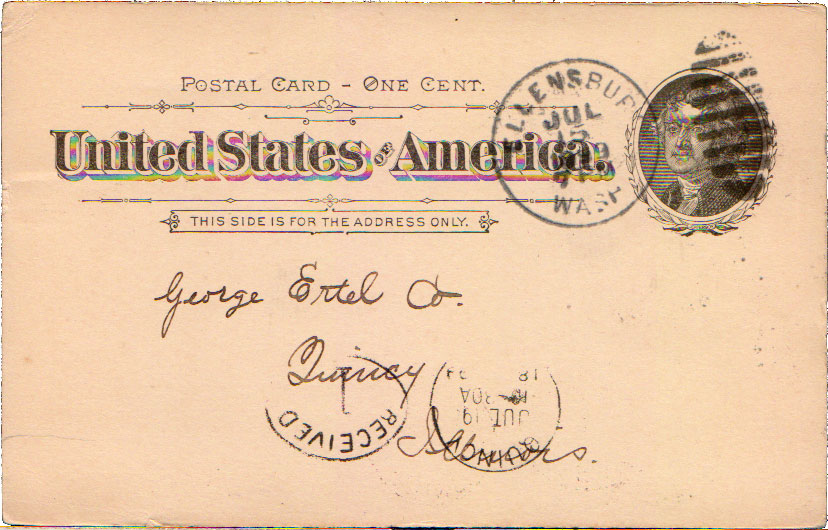 POSTAL CARD - ONE CENT.
United States of America.
THIS SIDE IS FOR THE ADDRESS ONLY.
ELLENSBURG
JUL
15
WASH
George Ertel Co.
Quincy
Illinois.
RECEIVED
JUL 19
30A
81